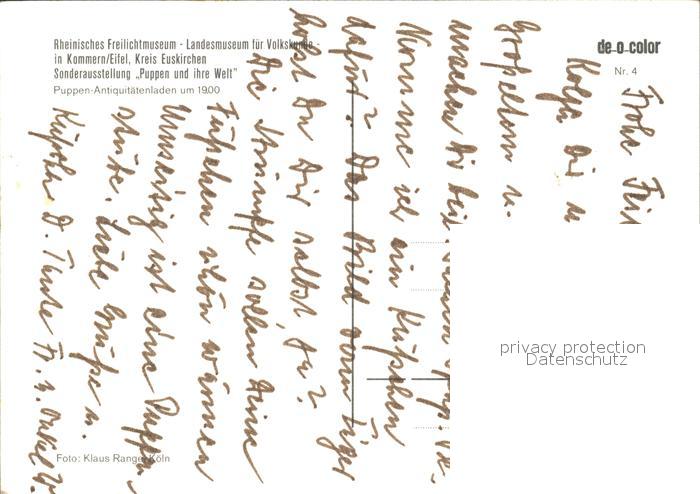 Rheinisches Freilichtmuseum - Landesmuseum für Volkskunde -
in Kommern/Eifel, Kreis Euskirchen
Sonderausstellung „Puppen und ihre Welt"
Puppen-Antiquitätenladen um 1900
de-o-color
Nr. 4
Frohe
Großeltern u.
machen Dir
Komme ich ein Küßchen
dafür? Das Bild vom Tiger
holst Du Dir selbst, ja?
Die Strümpfe sollen Deine
Füßchen schön wärmen
Umseitig ist eine Puppen-
stube. Liebe Grüße u.
Küßche D. Tante Fr. u. Onkel
privacy protection
Datenschutz
Foto: Klaus Range, Köln